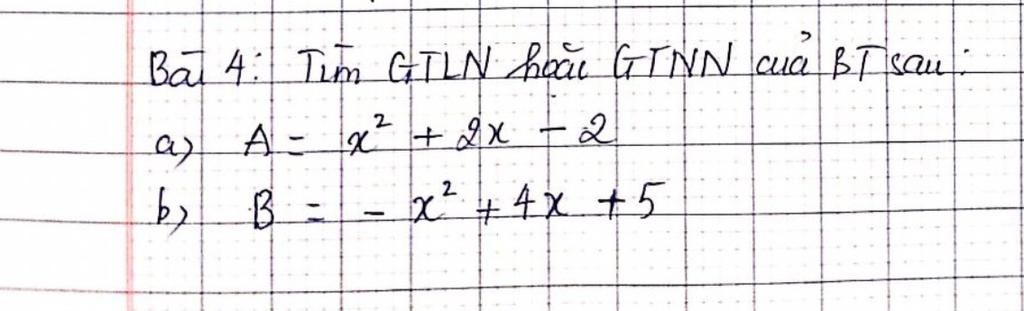 Bài 4: Tìm GTLN hoặc GTNN của BT sau:
a) A = x² + 2x - 2
b) B = - x² + 4x + 5